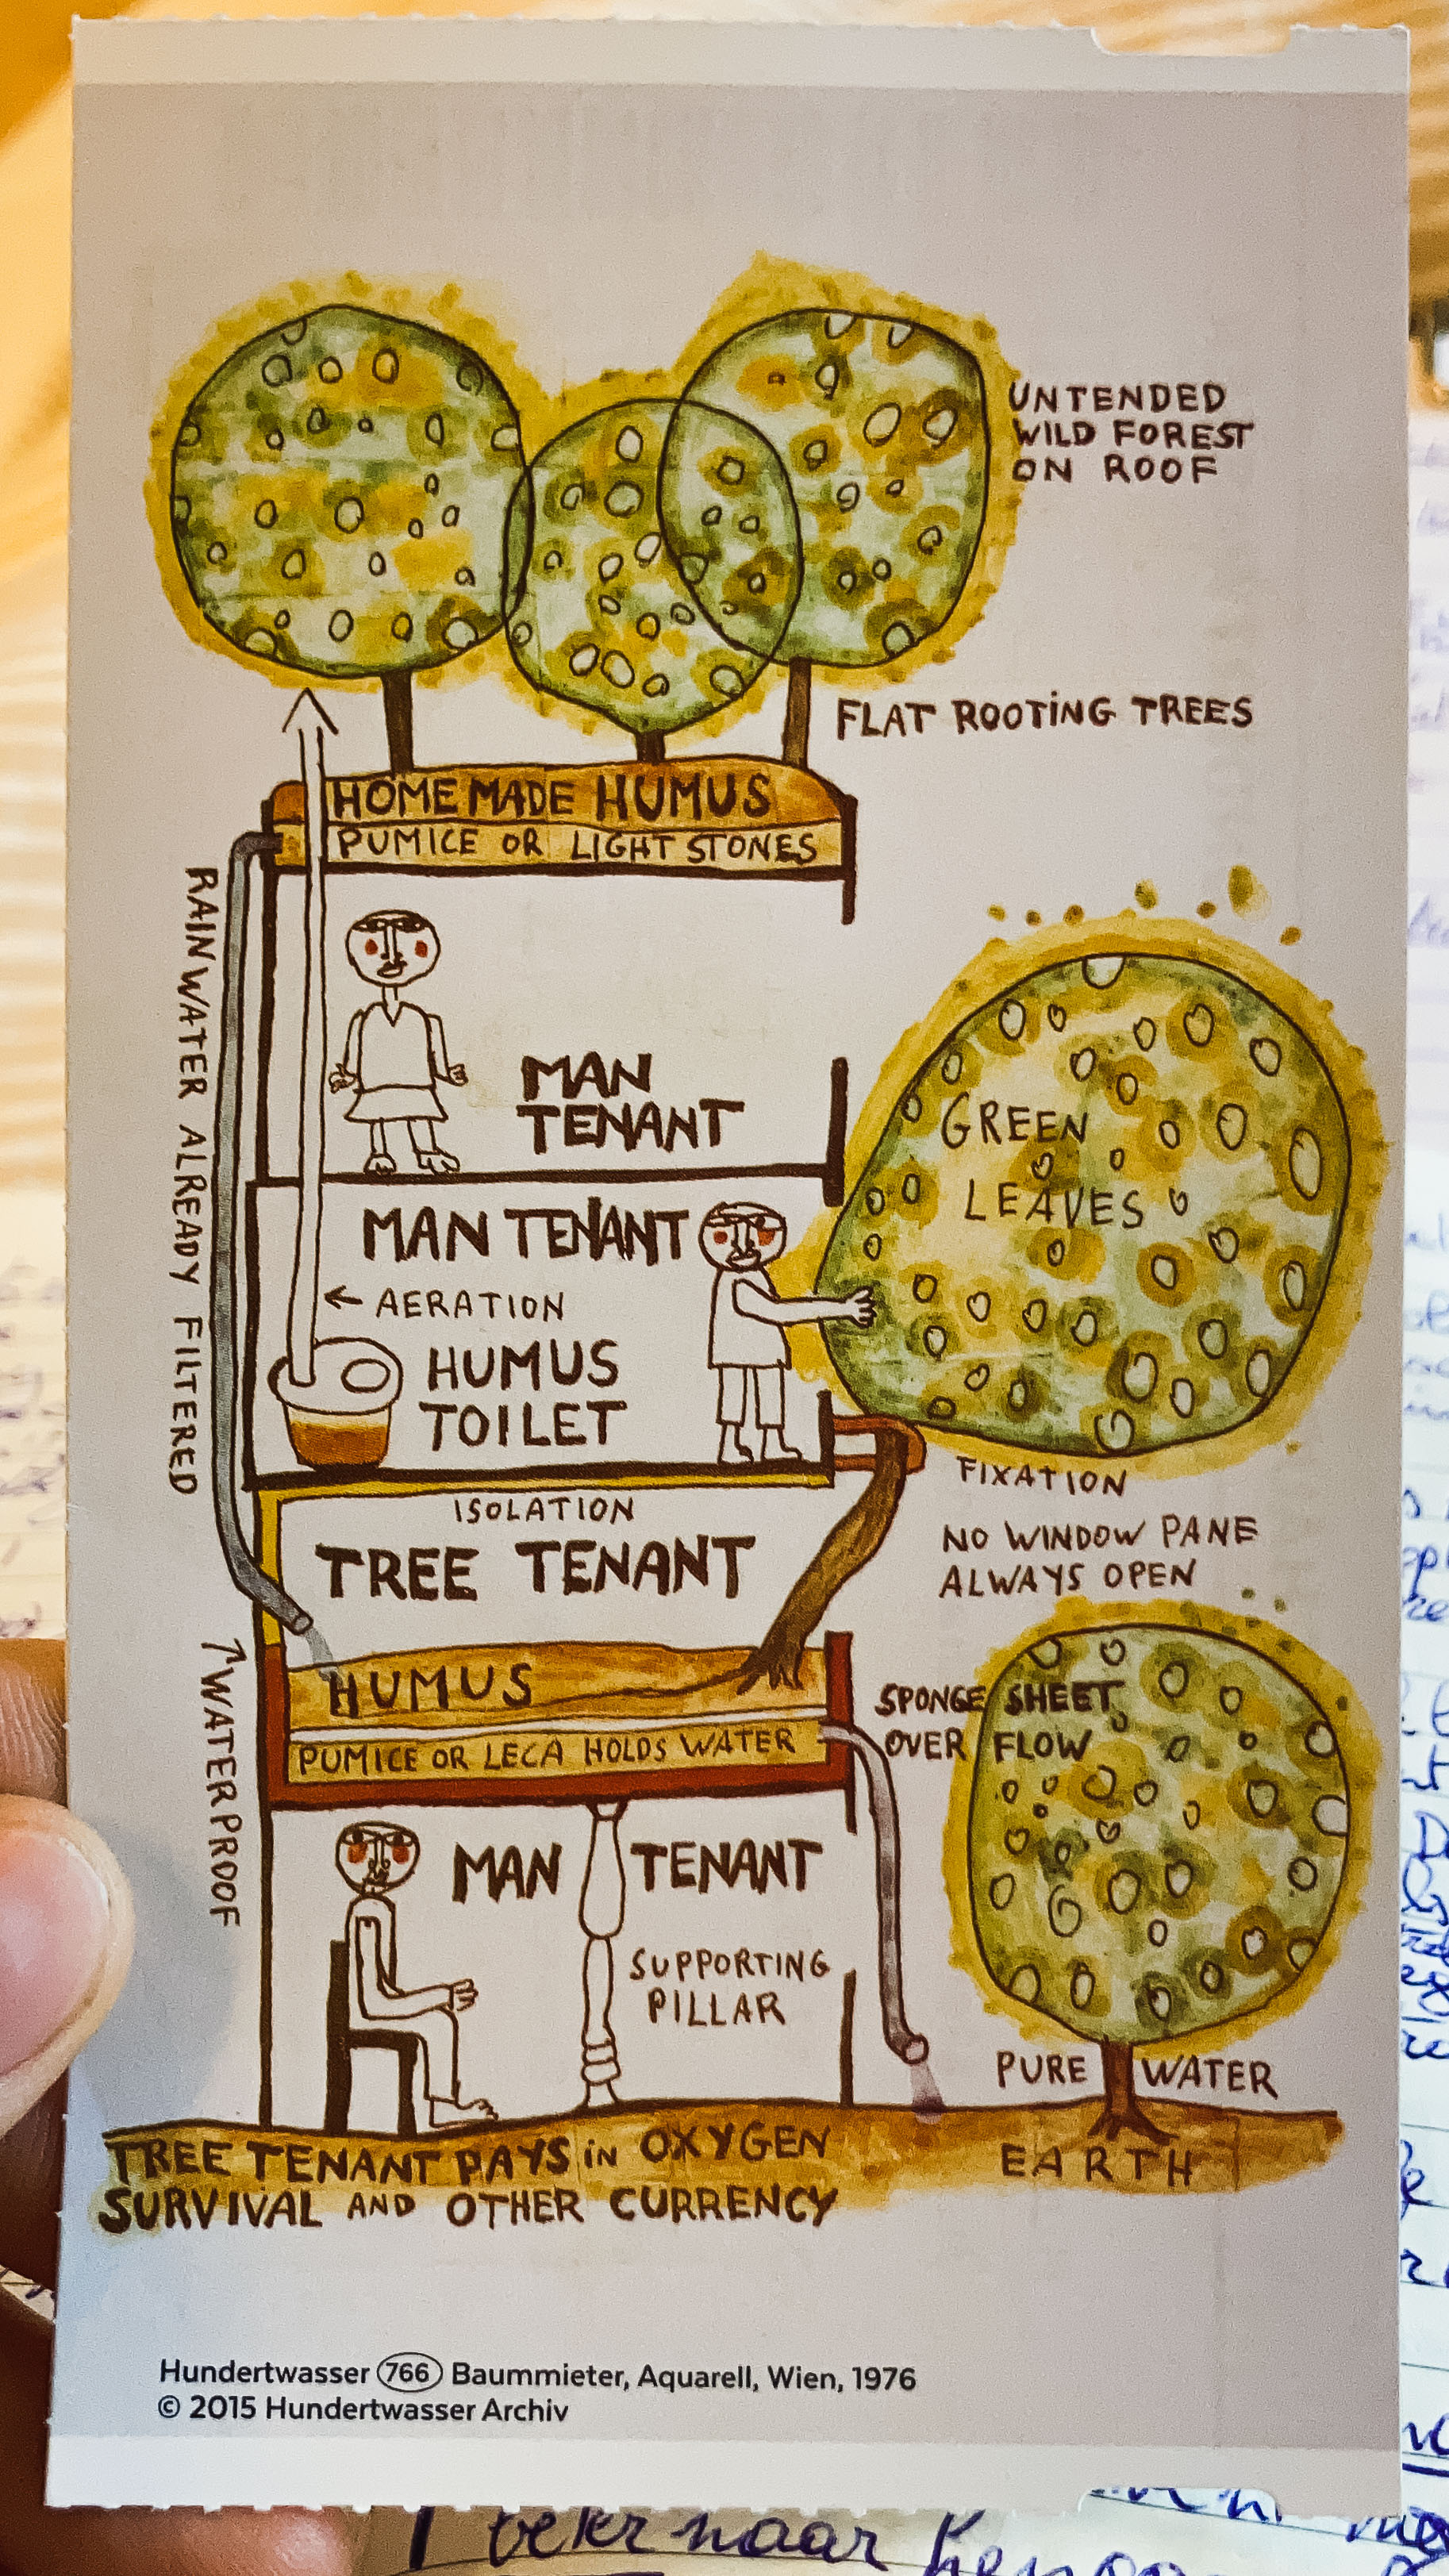 UNTENDED
WILD FOREST
ON ROOF
FLAT ROOTING TREES
HOME MADE HUMUS
PUMICE OR LIGHT STONES
RAINWATER ALREADY FILTERED
MAN
TENANT
GREEN
LEAVES
MAN TENANT
← AERATION
HUMUS
TOILET
FIXATION
ISOLATION
NO WINDOW PANE
ALWAYS OPEN
TREE TENANT
↑ WATERPROOF
HUMUS
SPONGE SHEET
OVER FLOW
PUMICE OR LECA HOLDS WATER
MAN TENANT
SUPPORTING
PILLAR
PURE WATER
EARTH
TREE TENANT PAYS iN OXYGEN
SURVIVAL AND OTHER CURRENCY
Hundertwasser 766 Baummieter, Aquarell, Wien, 1976
© 2015 Hundertwasser Archiv
naar